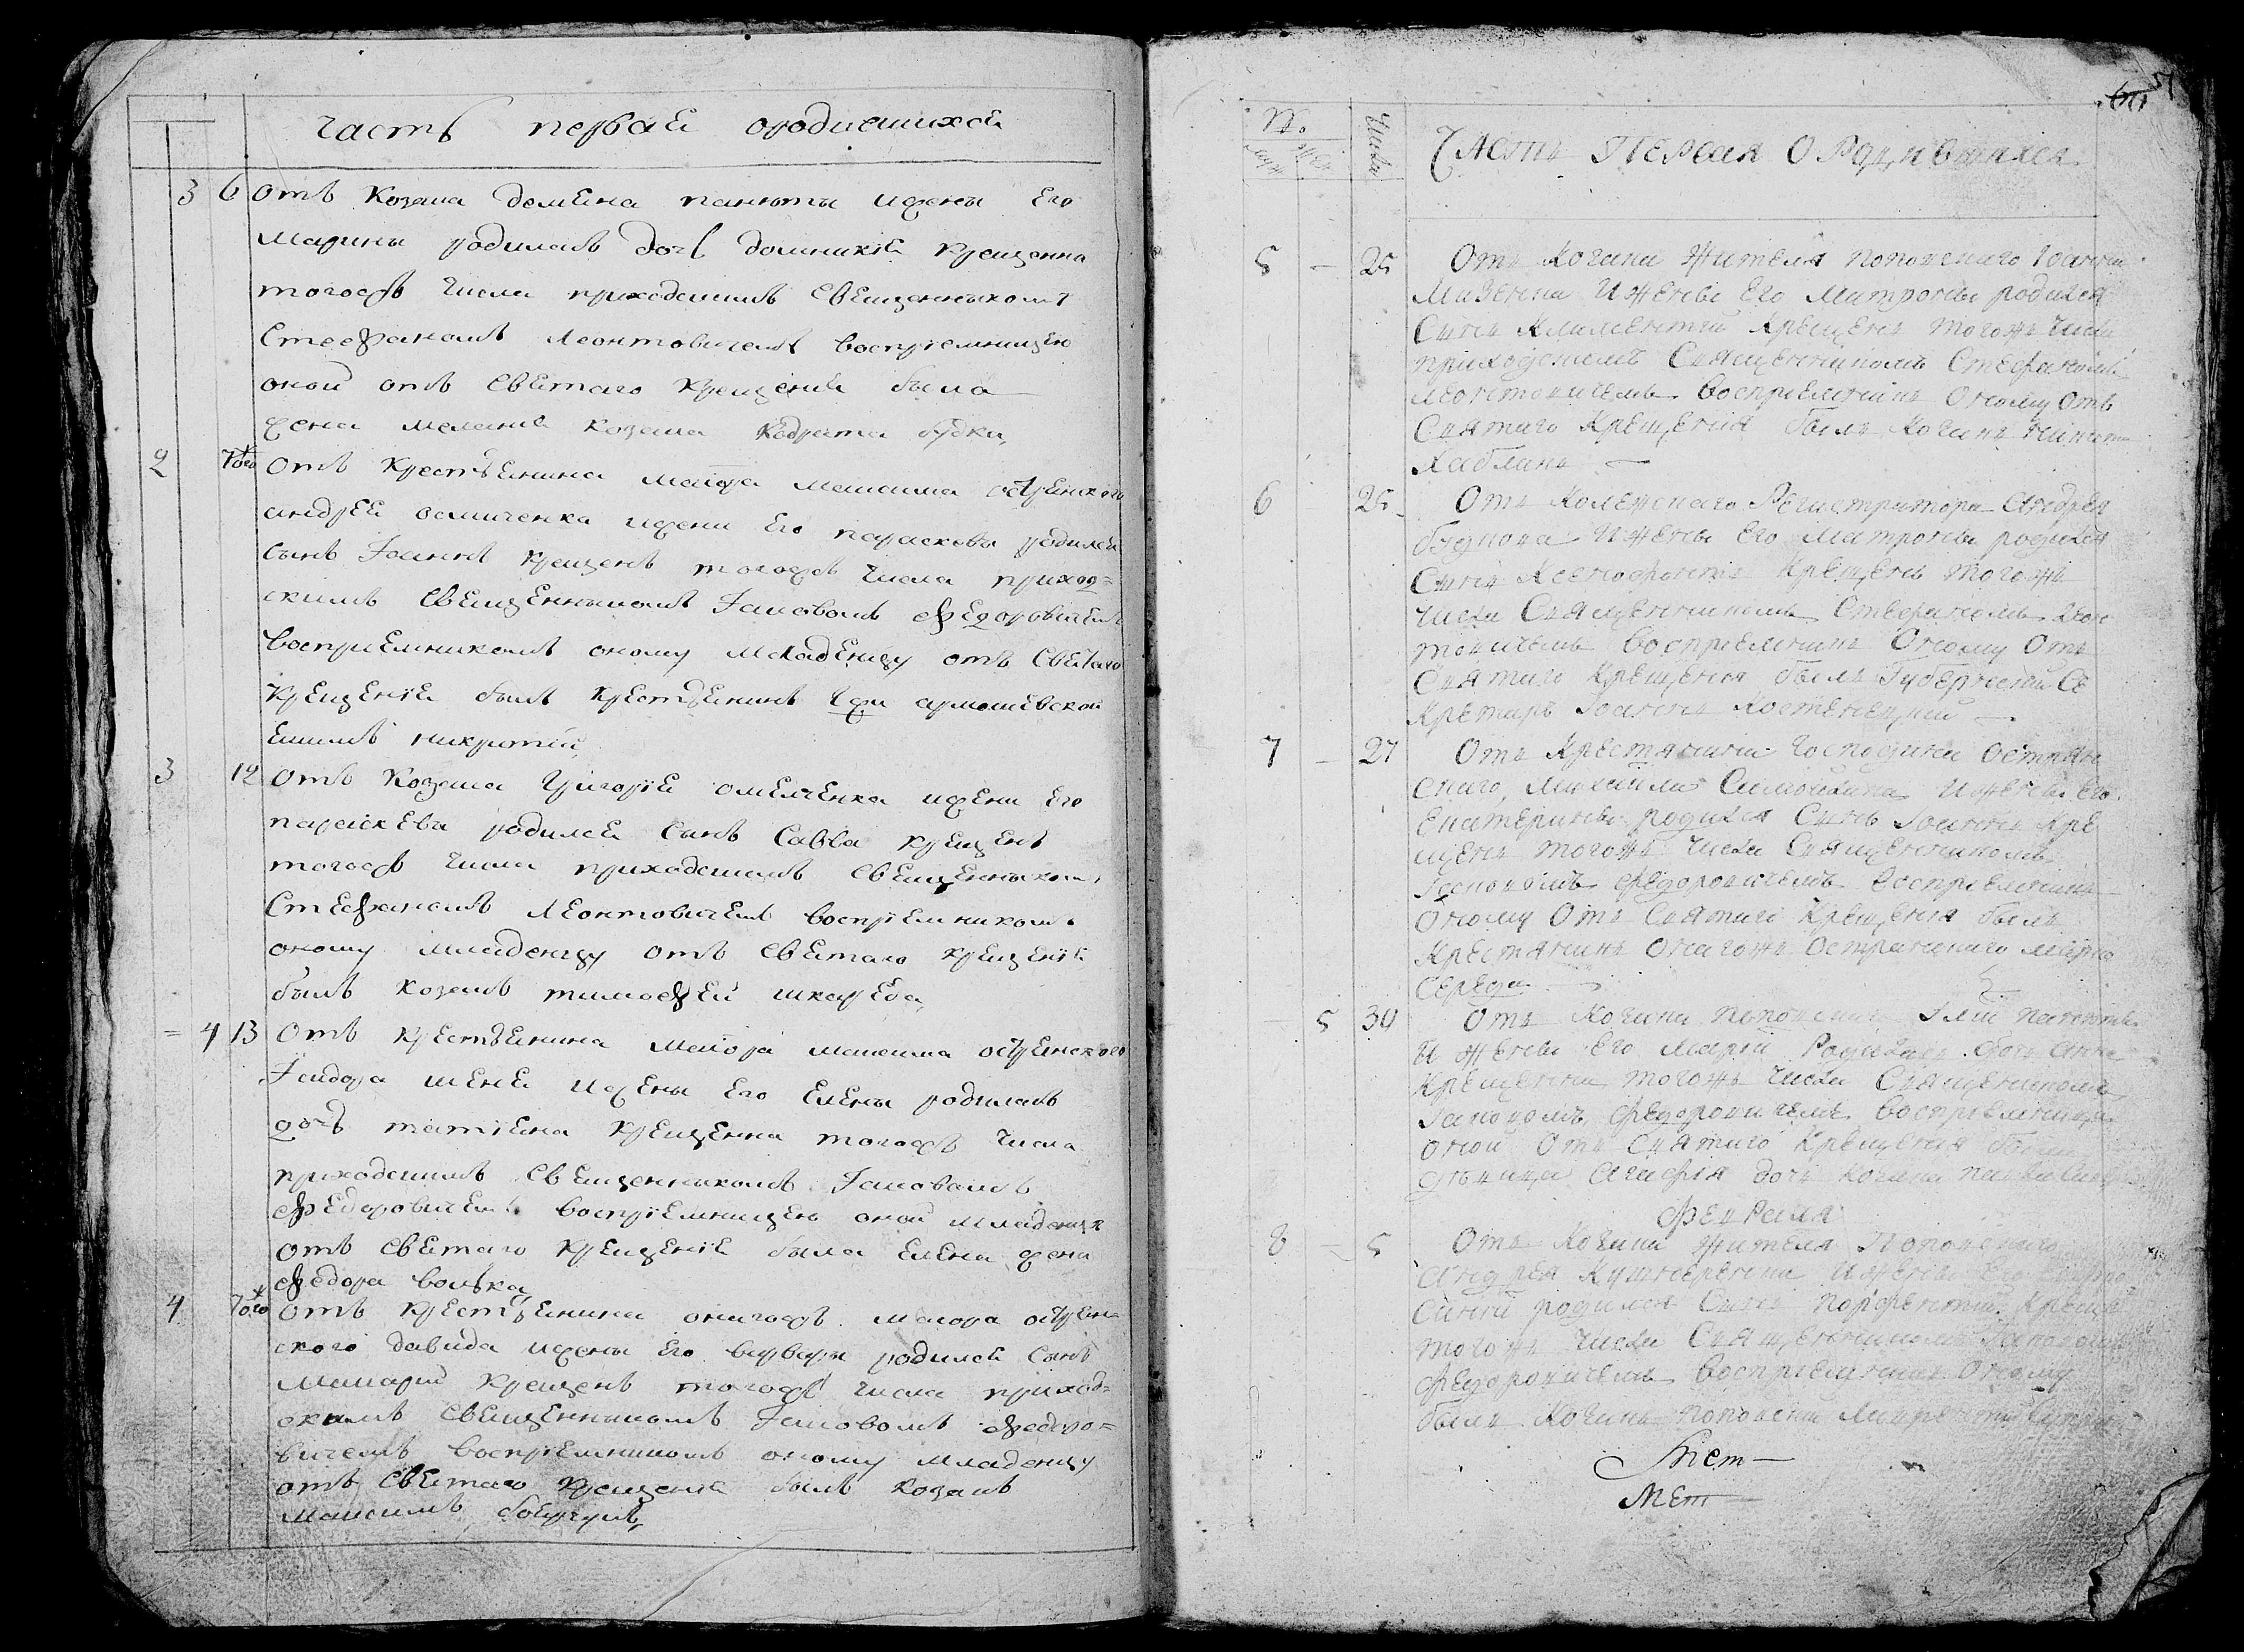 часть первая ородившихся
3 6 отъ Козака Демяна панюты ижены Его
Марины родилась дочь домникія крещенна
тогожъ числа приходскимъ священникомъ
Стефаномъ Леонтовичемъ восприемницею
оной отъ святаго крещенія была
жена меланія козака Кодрата будки,
2 того отъ крестьянина маиора максима острянского
андрея осмиченка ижени Его параскевы родился
сынъ Іоаннъ крещенъ тогожъ числа приход=
скимъ священникомъ Іаковомъ Федоровичемъ
восприемникомъ оному младенцу отъ святаго
крещенія былъ крестьянинъ
никротій,
3 12 отъ Козака Григорія омелченка ижени Его
параскевы родился сынъ Савва крещенъ
тогожъ числа приходскимъ священникомъ
Стефаномъ Леонтовичемъ восприемникомъ
оному младенцу отъ святаго крещенія
былъ козакъ тимофей шкареба,
= 4 13 отъ крестьянина маиора максима острянского
Ісидора ижены Его Елены родилась
дочь татіяна крещенна тогожъ числа
приходскимъ священникомъ Іаковомъ
Федоровичемъ восприемницею оной младенца
отъ святаго крещенія была Елена жена
Федора волька,
4 того отъ крестьянина онагожъ маиора острян
ского давида ижены Его варвары родился сынъ
макарій крещенъ тогожъ числа приход=
скимъ священникомъ Іаковомъ Федоро=
вичемъ восприемникомъ оному младенцу
отъ святаго крещенія былъ козакъ
максимъ

51
№. Числа
Часть Первая О Родившихся
5 — 25 Отъ Козака Жителя поповского Іоанна
Мизенна Ижены Его Матроны родился
Сынъ Климентій Крещенъ тогожъ числа
приходскимъ Священникомъ Стефаномъ
Леонтовичемъ восприемникъ Оному Отъ
Святаго Крещенія былъ Козакъ
Хаблакъ —
6 25 Отъ Колежского Регистратора Андрея
будкова Ижены Его Матроны родился
Сынъ Ксенофонтъ Крещенъ тогожъ
числа Священникомъ Стефаномъ Леон
товичемъ восприемникъ Оному Отъ
Святаго Крещенія былъ Губернский Се
кретарь Іоаннъ Костенецкий —
7 — 27 Отъ Крестянина господина острян
скаго, Михайла Ижены Его
Екатерины родился Сынъ Іоаннъ Кре
щенъ тогожъ числа Священникомъ
Іаковомъ Федоровичемъ восприемникъ
Оному Отъ Святаго Крещенія былъ
Крестянинъ Онагожъ Острянскаго Марко
Середа —
— 5 30 Отъ Козака Поповского Іліи панюты
И жены Его Маріи Родилась дочь Анна
Крещенна тогожъ числа Священникомъ
Іаковомъ Федоровичемъ восприемница
оной Отъ Святаго Крещенія была
дѣвица Агафія дочь козака
Февраля
8 — 5 Отъ Козака жителя Поповского
Андрея Ижены Его
родился Сынъ Крещенъ
тогожъ числа Священникомъ Іаковомъ
Федоровичемъ восприемникъ Оному
былъ Козакъ поповский